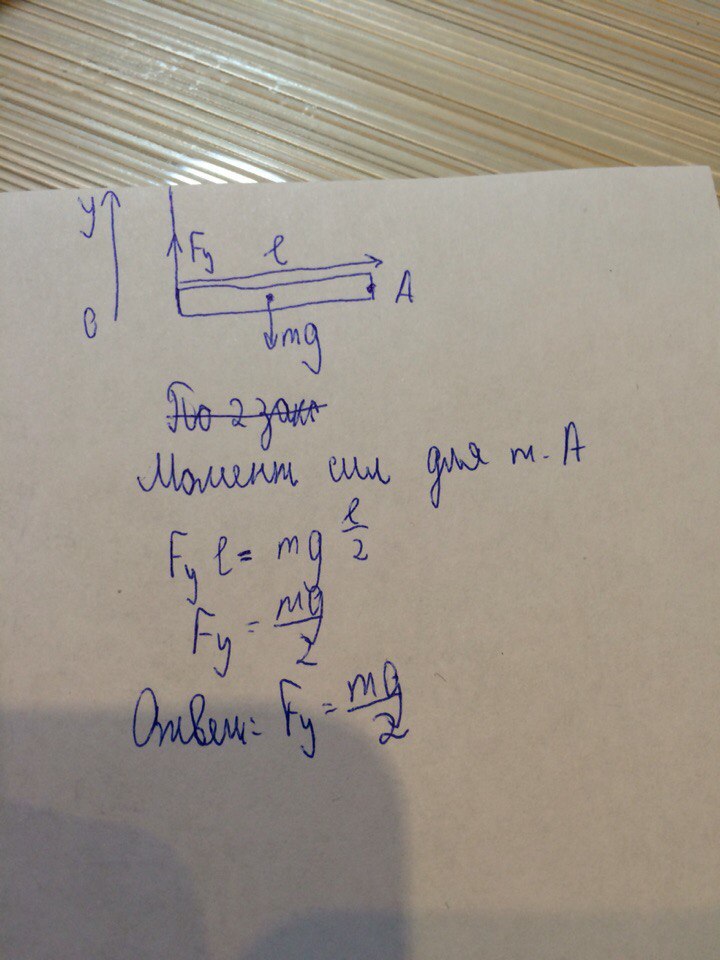 y
Fy
l
A
0
mg
По 2 зак
Момент сил для т. А
Fy l = mg l/2
Fy = mg/2
Ответ: Fy = mg/2